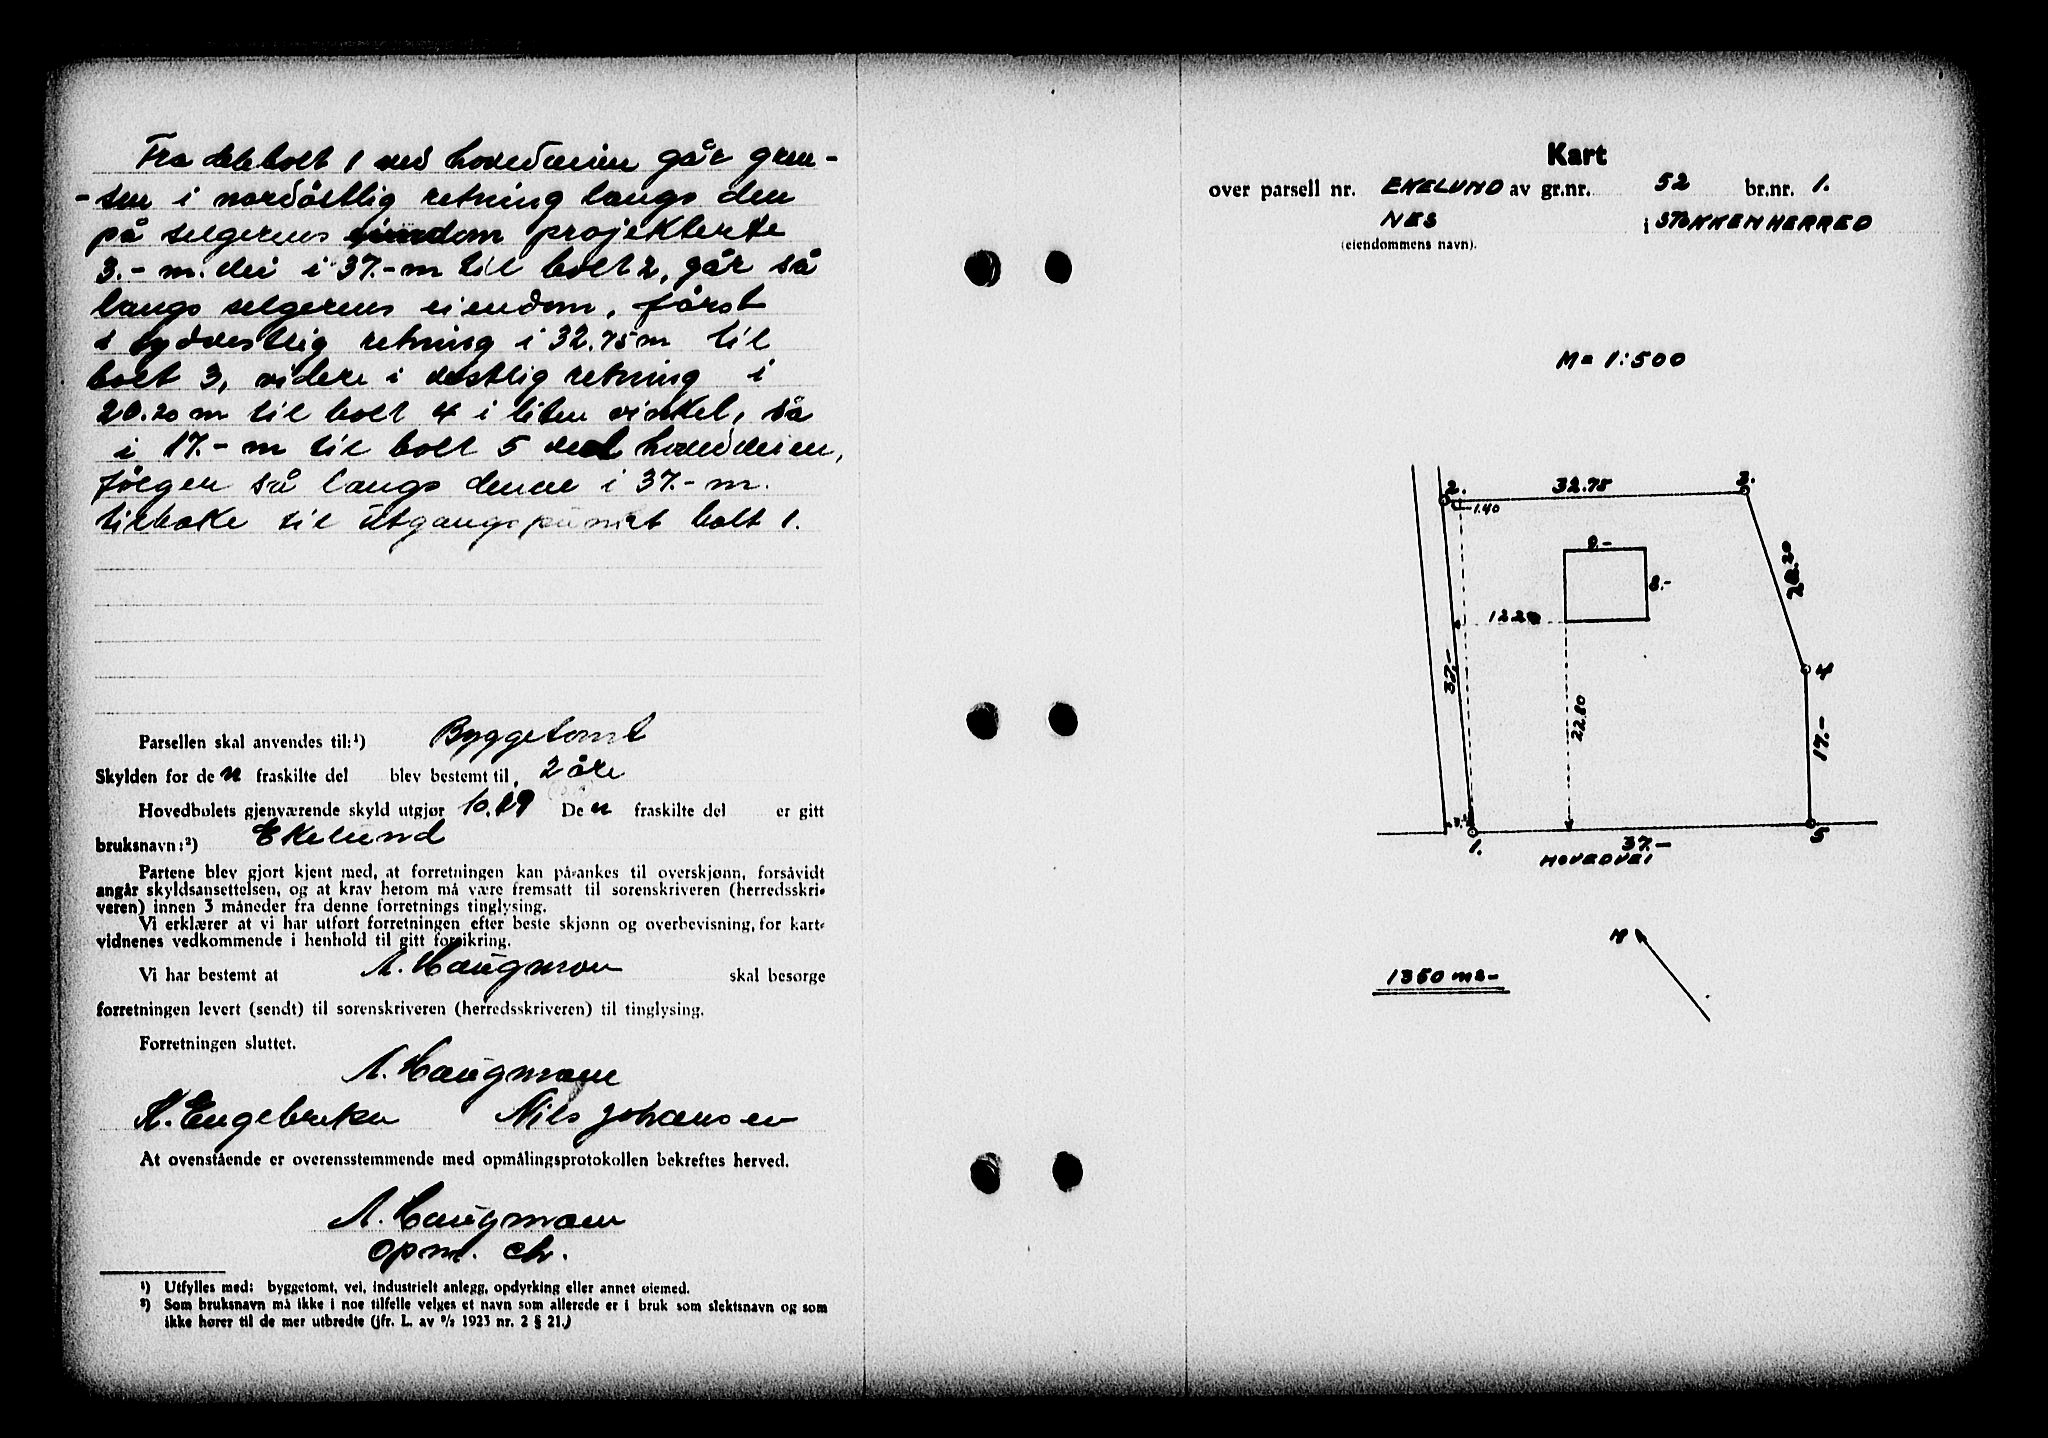 Fra delebolt 1 ved hovedveien går gren-
-sen i nordöstlig retning langs den
på selgerens eiendom projekterte
3.- m. vei i 37.-m til bolt 2, går så
langs selgerens eiendom, först
i sydöstlig retning i 32.75 m til
bolt 3, videre i vestlig retning i
20.20 m til bolt 4 i liten vinkel, så
i 17.- m til bolt 5 ved hovedveien,
fölger så langs denne i 37.- m.
tilbake til utgangspunkt bolt 1.
Parsellen skal anvendes til:¹) Byggetomt
Skylden for de n fraskilte del blev bestemt til 2 öre
Hovedbølets gjenværende skyld utgjør 10.19 De n fraskilte del er gitt
bruksnavn:²) Ekelund
Partene blev gjort kjent med, at forretningen kan på-ankes til overskjønn, forsåvidt
angår skyldsansettelsen, og at krav herom må være fremsatt til sorenskriveren (herredsskri-
veren) innen 3 måneder fra denne forretnings tinglysing.
Vi erklærer at vi har utført forretningen efter beste skjønn og overbevisning, for kart-
vidnenes vedkommende i henhold til gitt forsikring.
Vi har bestemt at A. Haugmoen skal besørge
forretningen levert (sendt) til sorenskriveren (herredsskriveren) til tinglysing.
Forretningen sluttet.
A. Haugmoen
K. Engebretsen Nils Johansen
At ovenstående er overensstemmende med opmålingsprotokollen bekreftes herved.
A. Haugmoen
opm. ch.
¹) Utfylles med: byggetomt, vei, industrielt anlegg, opdyrking eller annet øiemed.
²) Som bruksnavn må ikke i noe tilfelle velges et navn som allerede er i bruk som slektsnavn og som
ikke hører til de mer utbredte (jfr. L. av ⁹/₂ 1923 nr. 2 § 21.)
Kart
over parsell nr. EKELUND av gr.nr. 52 br.nr. 1.
NES i STOKKEN HERRED
(eiendommens navn).
M = 1:500
2. 32.75 3.
1.40
9.-
8.-
20.20
12.20
4
37.-
22.80
17.-
1. 37.- 5
HOVEDVEI
N
1350 m2-